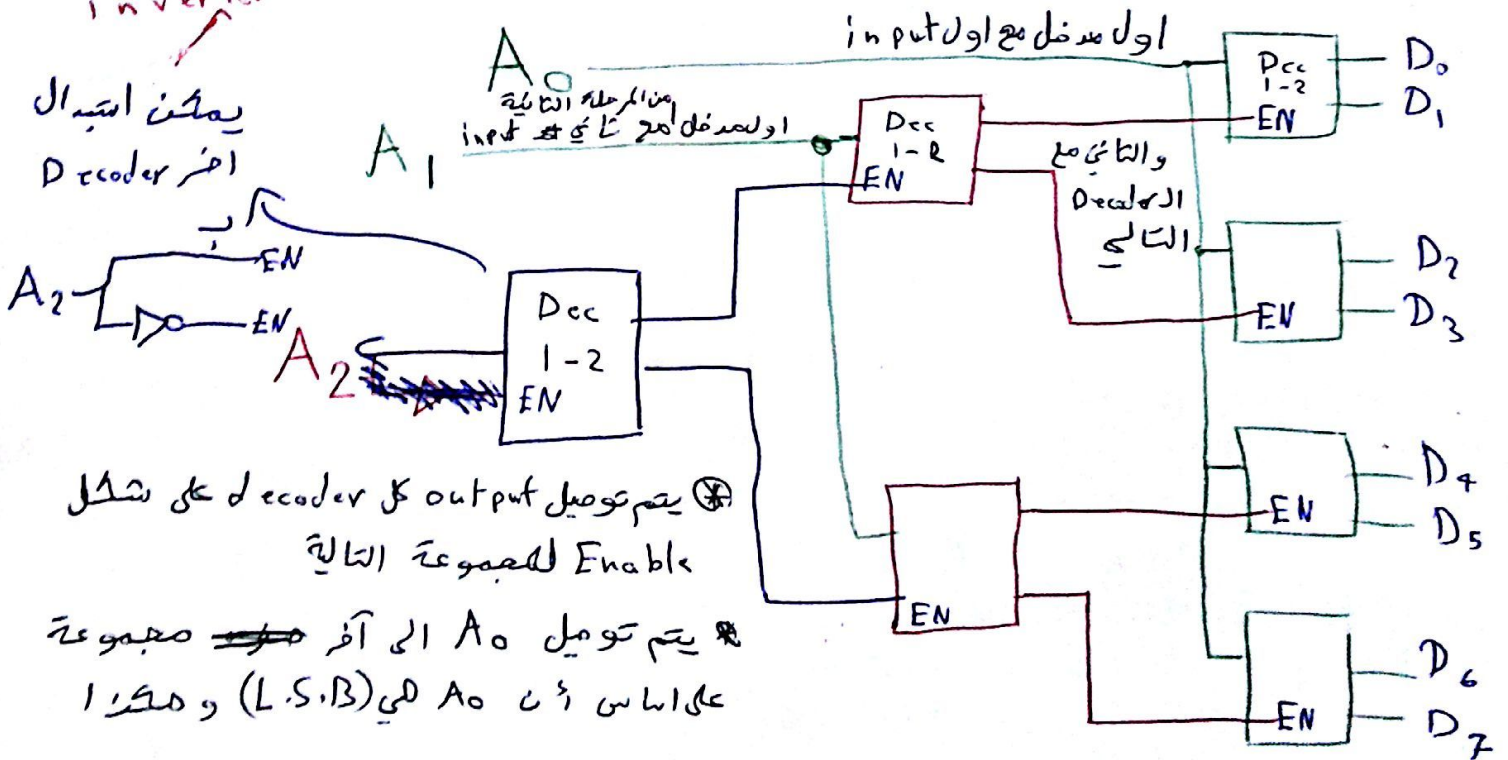 يمكن استبدال
اخر Decoder
بـ
A2
EN
EN
A0
اول مدخل مع اول input
A1
من المرحلة الثانية
اول مدخل مع ثاني input
A2
Dec
1-2
EN
Dec
1-2
EN
والثاني مع
الـ Decoder
التالي
EN
Dec
1-2
EN
D0
D1
EN
D2
D3
EN
D4
D5
EN
D6
D7
* يتم توصيل output كل decoder على شكل
Enable للمجموعة التالية
* يتم توصيل A0 الى آخر مجموعة
على اساس أن A0 هي (L.S.B) و هكذا